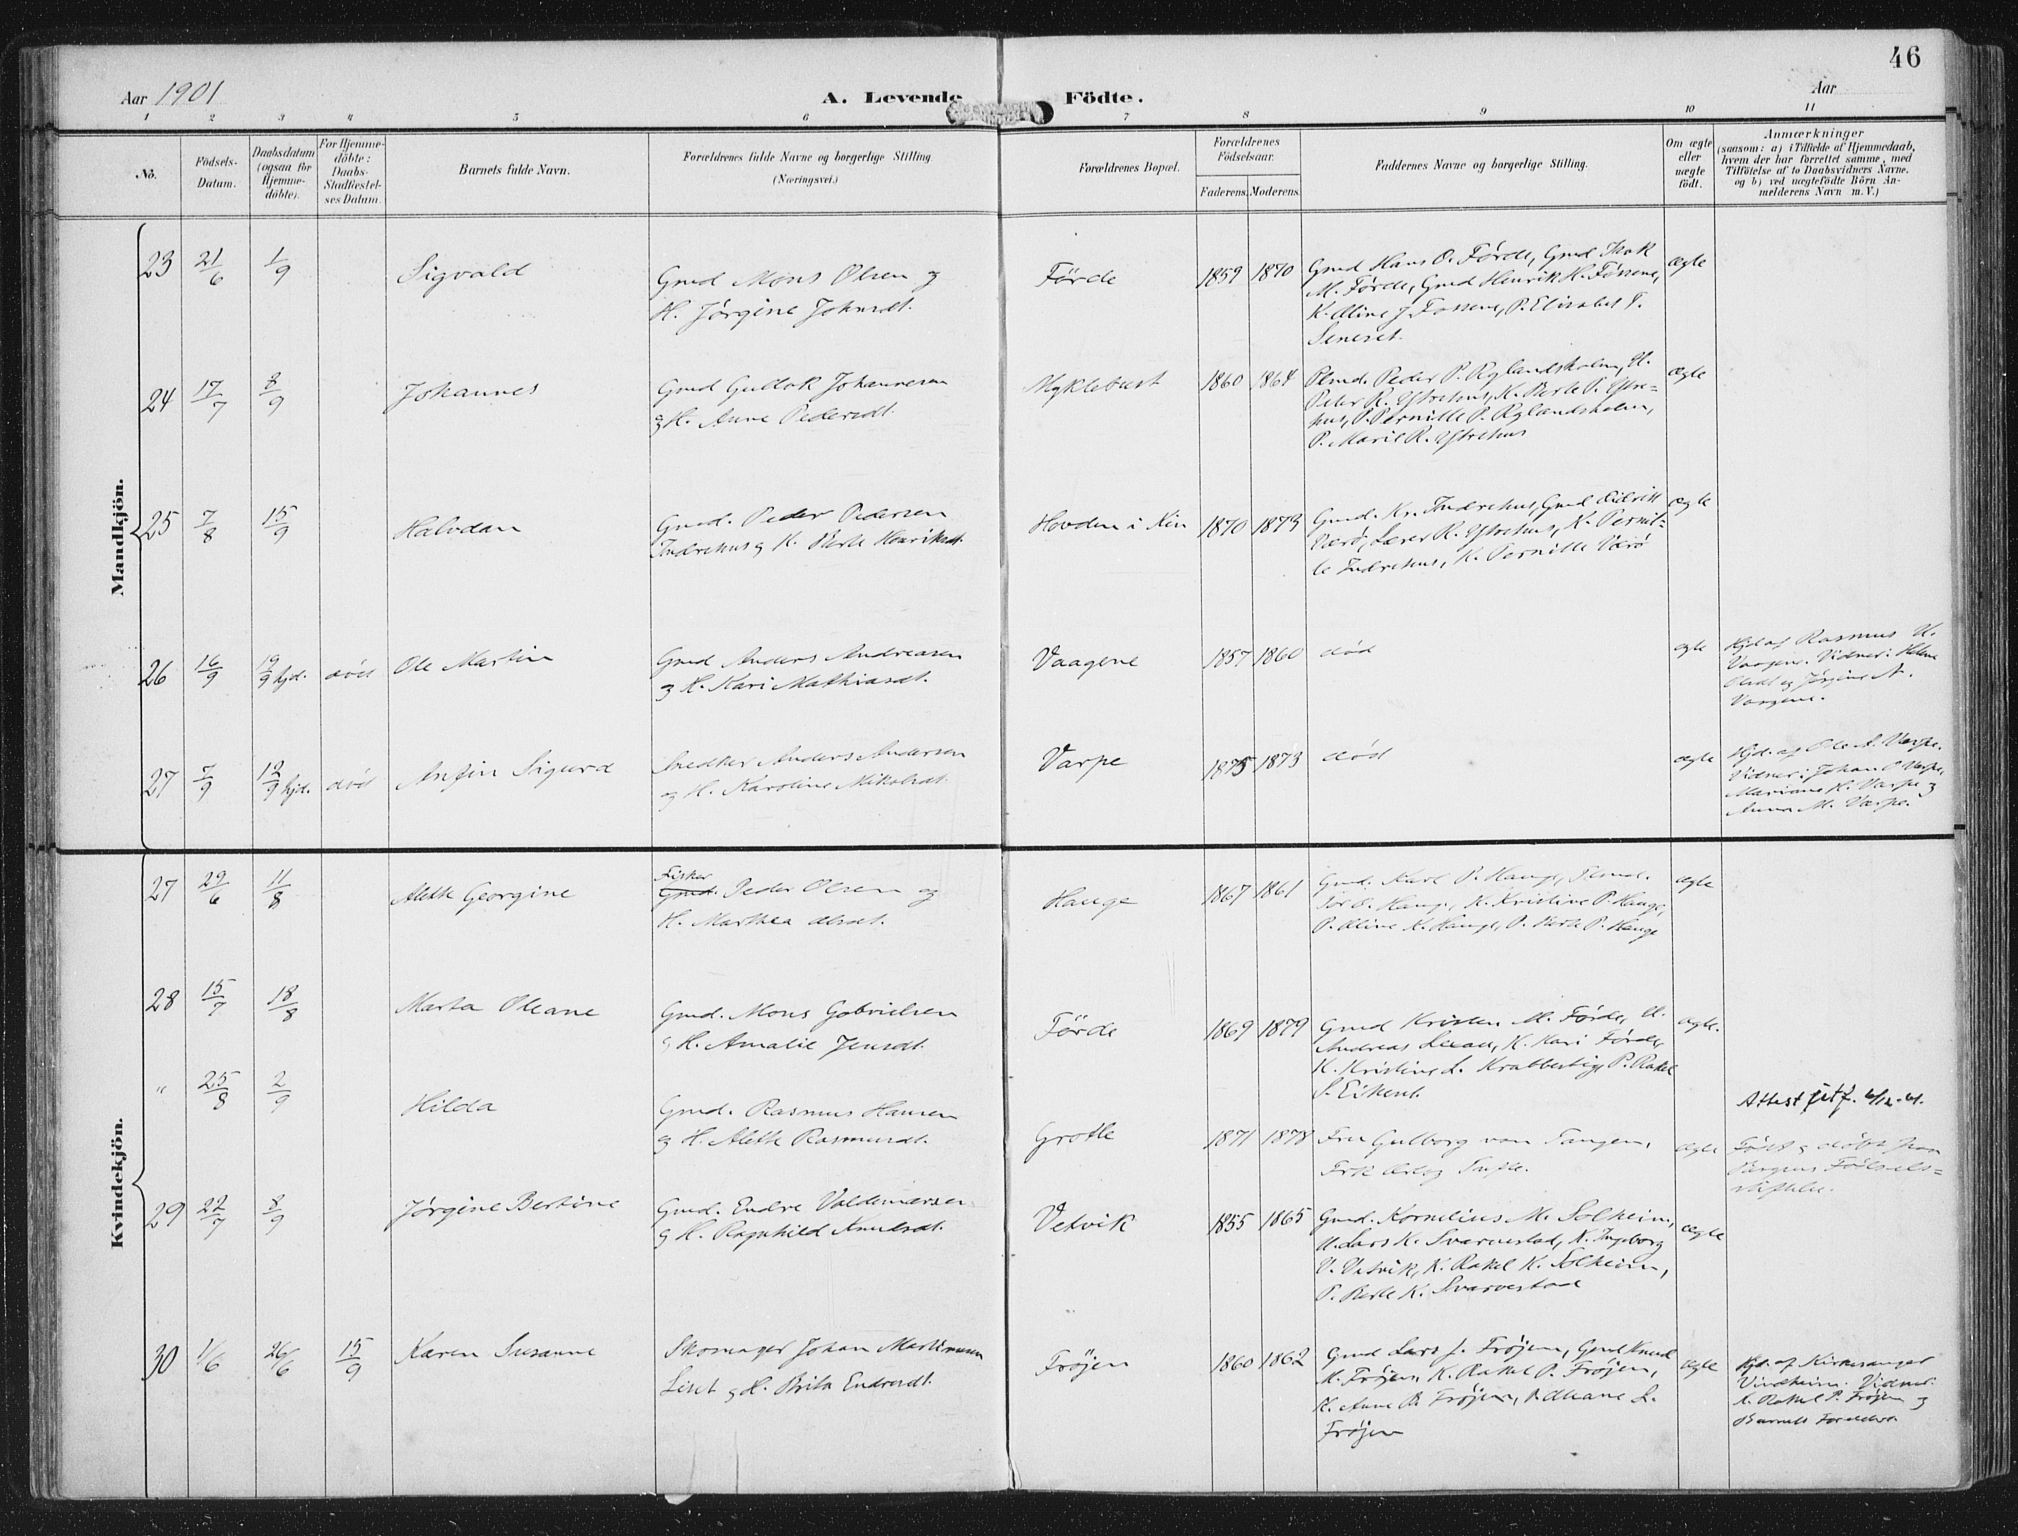 46
Aar 1901
A. Levende Födte.
Aar
1 2 3 4 5 6 7 8 9 10 11
No.
Födsels-Datum.
Daabsdatum (ogsaa for Hjemme-döbte).
For Hjemme-döbte: Daabs-Stadfæstelses Datum.
Barnets fulde Navn.
Forældrenes fulde Navne og borgerlige Stilling (Næringsvei.)
Forældrenes Bopæl.
Forældrenes Födselsaar.
Faderens. Moderens.
Faddernes Navne og borgerlige Stilling.
Om ægte eller uægte födt.
Anmærkninger
(saasom: a) i Tilfælde af Hjemmedaab,
hvem der har forrettet samme, med
Tilföielse af to Daabsvidners Navne.
og b) ved uægtefödte Börn An-
melderens Navn m. V.)
Mandkjön.
23 21/6 1/9 Sigvald
Gmd Mons Olsen og
H. Jørgine Johnsdt.
Förde 1859 1870
Gmd Hans O. Førde, Gmd
M. Førde, Gmd Henrik H. Fossene,
K. Oline J Fossene, P. Elisabet P.
Seneset.
ægte
24 17/7 8/9 Johannes
Gmd Gullak Johannesen
og H. Anne Pedersdt.
Myklebust 1860 1864
Peder P. Rylandsholm, U.
Peter R. Ystrehus, K. Berte P. Ystre-
hus, P. Pernille P. Rylandsholm,
P. Marie R. Ystrehus
ægte
25 7/8 15/9 Halvdan
Gmd. Peder Pedersen
Indrehus og H. Berte Henriksdt.
Hovden i Kin 1870 1873
Gmd. Kr. Indrehus, Gmd Didrik
Værø, Lærer R. Ystrehus, K. Pernil-
le Indrehus, K. Pernille Værø
ægte
26 16/9 19/9 hjd. død Ole Martin
Gmd Anders Andreasen
og H. Kari Mathiasdt.
Vaagene 1857 1860 død ægte
Hjd af Rasmus U.
Vaagene. Vidner: Helene
Olsdt og Jørgine A.
Vaagene.
27 7/9 12/9 hjd. død Anfin Sigurd
Snedker Anders Andersen
og H. Karoline Mikolsdt.
Varpe 1875 1873 død ægte
Hjd. af Ole A. Varpe.
Vidner: Johan O Varpe,
Mariane K. Varpe og
Anna M. Varpe.
Kvindekjön.
27 29/6 11/8 Alette Georgine
Fisker
Gmd. Peder Olsen og
H. Marthea Olsdt.
Hauge 1867 1861
Gmd. Karl P. Hauge,
O. Hauge, K. Kristine P. Hauge,
P. Oline K. Hauge, P. Berte P. Hauge
ægte
28 15/7 18/8 Marta Oleane
Gmd. Mons Gabrielsen
og H. Amalie Jensdt.
Förde 1869 1879
Gmd Kristen M. Førde, U.
Andreas, K. Kari Førde,
K. Kristine L. Krabbestig, P. Rakel
S. Eikeset.
ægte.
" 25/8 2/9 Hilda
Gmd. Rasmus Hansen
og H. Alette Rasmusdt.
Grotle 1871 1878
Fru Gulborg von Tangen,
Frk
ægte
Attest 6/12-61.
Født og døbt paa
Bergens Fødsels-
stiftelse.
29 22/7 8/9 Jørgine Bertine
Gmd. Endre Valdemarsen
og H. Ragnhild Knudsdt.
Vetvik 1855 1865
Gmd. Kornelius M. Solheim,
U. Lars K. Svarvestad, K. Ingeborg
V. Vetvik, K. Rakel K. Solheim,
P. Berte K. Svarvestad
ægte
30 1/6 26/6 15/9 Karen Susanne
Skomager Johan Martinusen
Liset og H. Brita Endresdt.
Frøjen 1860 1862
Gmd Lars J. Frøjen, Gmd Knud
K. Frøjen, K. Rakel P. Frøjen,
K. Anne B. Frøjen, P. Oleane L.
Frøjen
ægte
Hjd. af Kirkesanger
Vindheim. Vidner.
K. Rakel P. Frøjen og
Barnets Forældre.